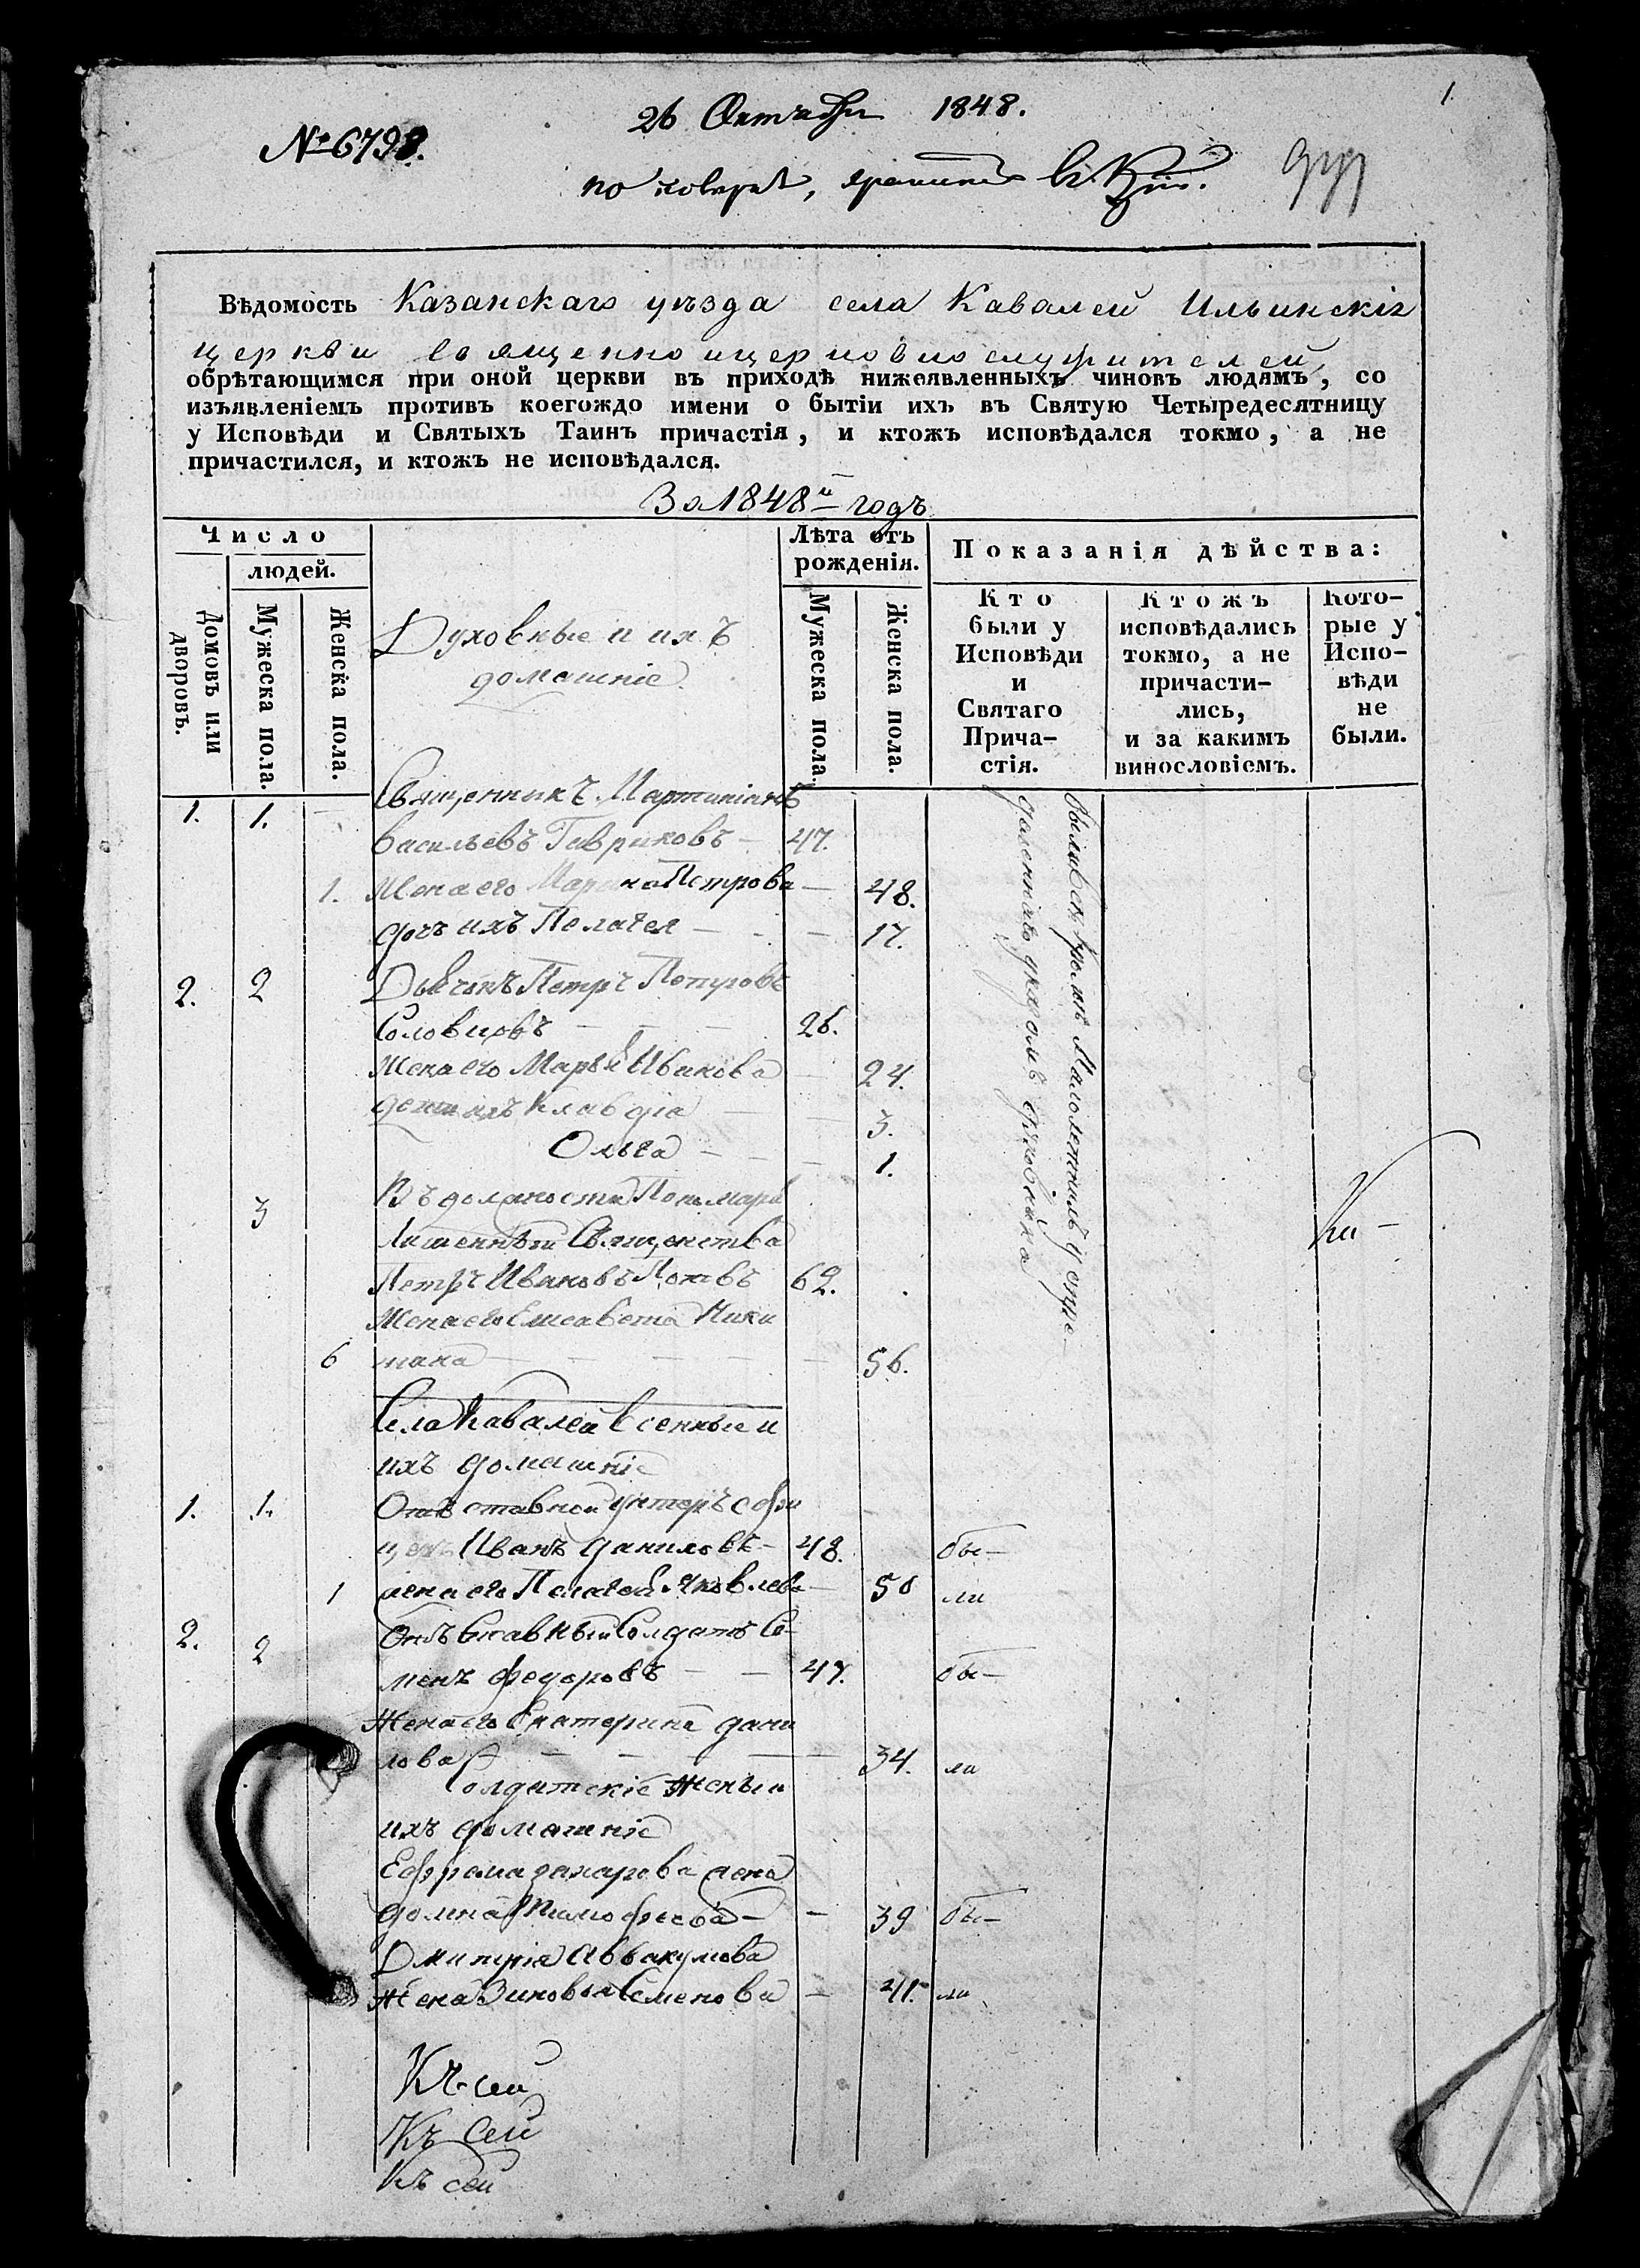 1.
26 Октября 1848.
№ 6798.
по поверкѣ, хранить
Вѣдомость Казанскаго уѣзда села Кавалей Ильинскія
церкви священно и церковно служителей,
обрѣтающимся при оной церкви въ приходѣ нижеявленныхъ чиновъ людямъ, со
изъявленіемъ противъ коегождо имени о бытіи ихъ въ Святую Четыредесятницу
у Исповѣди и Святыхъ Таинъ причастія, и ктожъ исповѣдался токмо, а не
причастился, и ктожъ не исповѣдался.
За 1848й годъ
Число
людей.
Домовъ или дворовъ.
Мужеска пола.
Женска пола.
Духовные и ихъ
домашніе.
Лѣта отъ
рожденія.
Мужеска пола.
Женска пола.
Показанія дѣйства:
Кто
были у
Исповѣди
и
Святаго
Прича-
стія.
Ктожъ
исповѣдались
токмо, а не
причасти-
лись,
и за какимъ
винословіемъ.
Кото-
рые у
Испо-
вѣди
не
были.
1. 1. Священникъ Мартиніанъ
Васильевъ Гавриковъ 47.
1. Жена его Марина Петрова 48.
дочь ихъ Пелагея 17.
2. 2 Дьячокъ Петръ Петровъ
Соловцовъ 26.
Жена его Марья Иванова 24.
дети ихъ Клавдіа 3.
Ольга 1.
3 Въ должности Пономаря
Лишенный Священства
Петръ Ивановъ Поповъ 62.
Жена его Елисавета Ники
6 тина 56.
были всѣ кромѣ Малолетнихъ и отре-
Села Кавалей Военные и
ихъ домашніе
1. 1. Отъставной унтеръ офи
церъ Иванъ Даниловъ 48. бы-
1 жена его Пелагея Яковлева 50 ли
2. 2 Отъставный Солдатъ Се-
менъ Федоровъ 47. бы-
Жена его Екатерина Дани
лова 34. ли
Солдатскіе Жены и
ихъ домашніе
Ефрема Захарова жена
Домна Тимофеева 39 бы-
Дмитрія Аввакумова
Жена Зиновья Семенова 41. ли
Къ сей
Къ сей
Къ сей